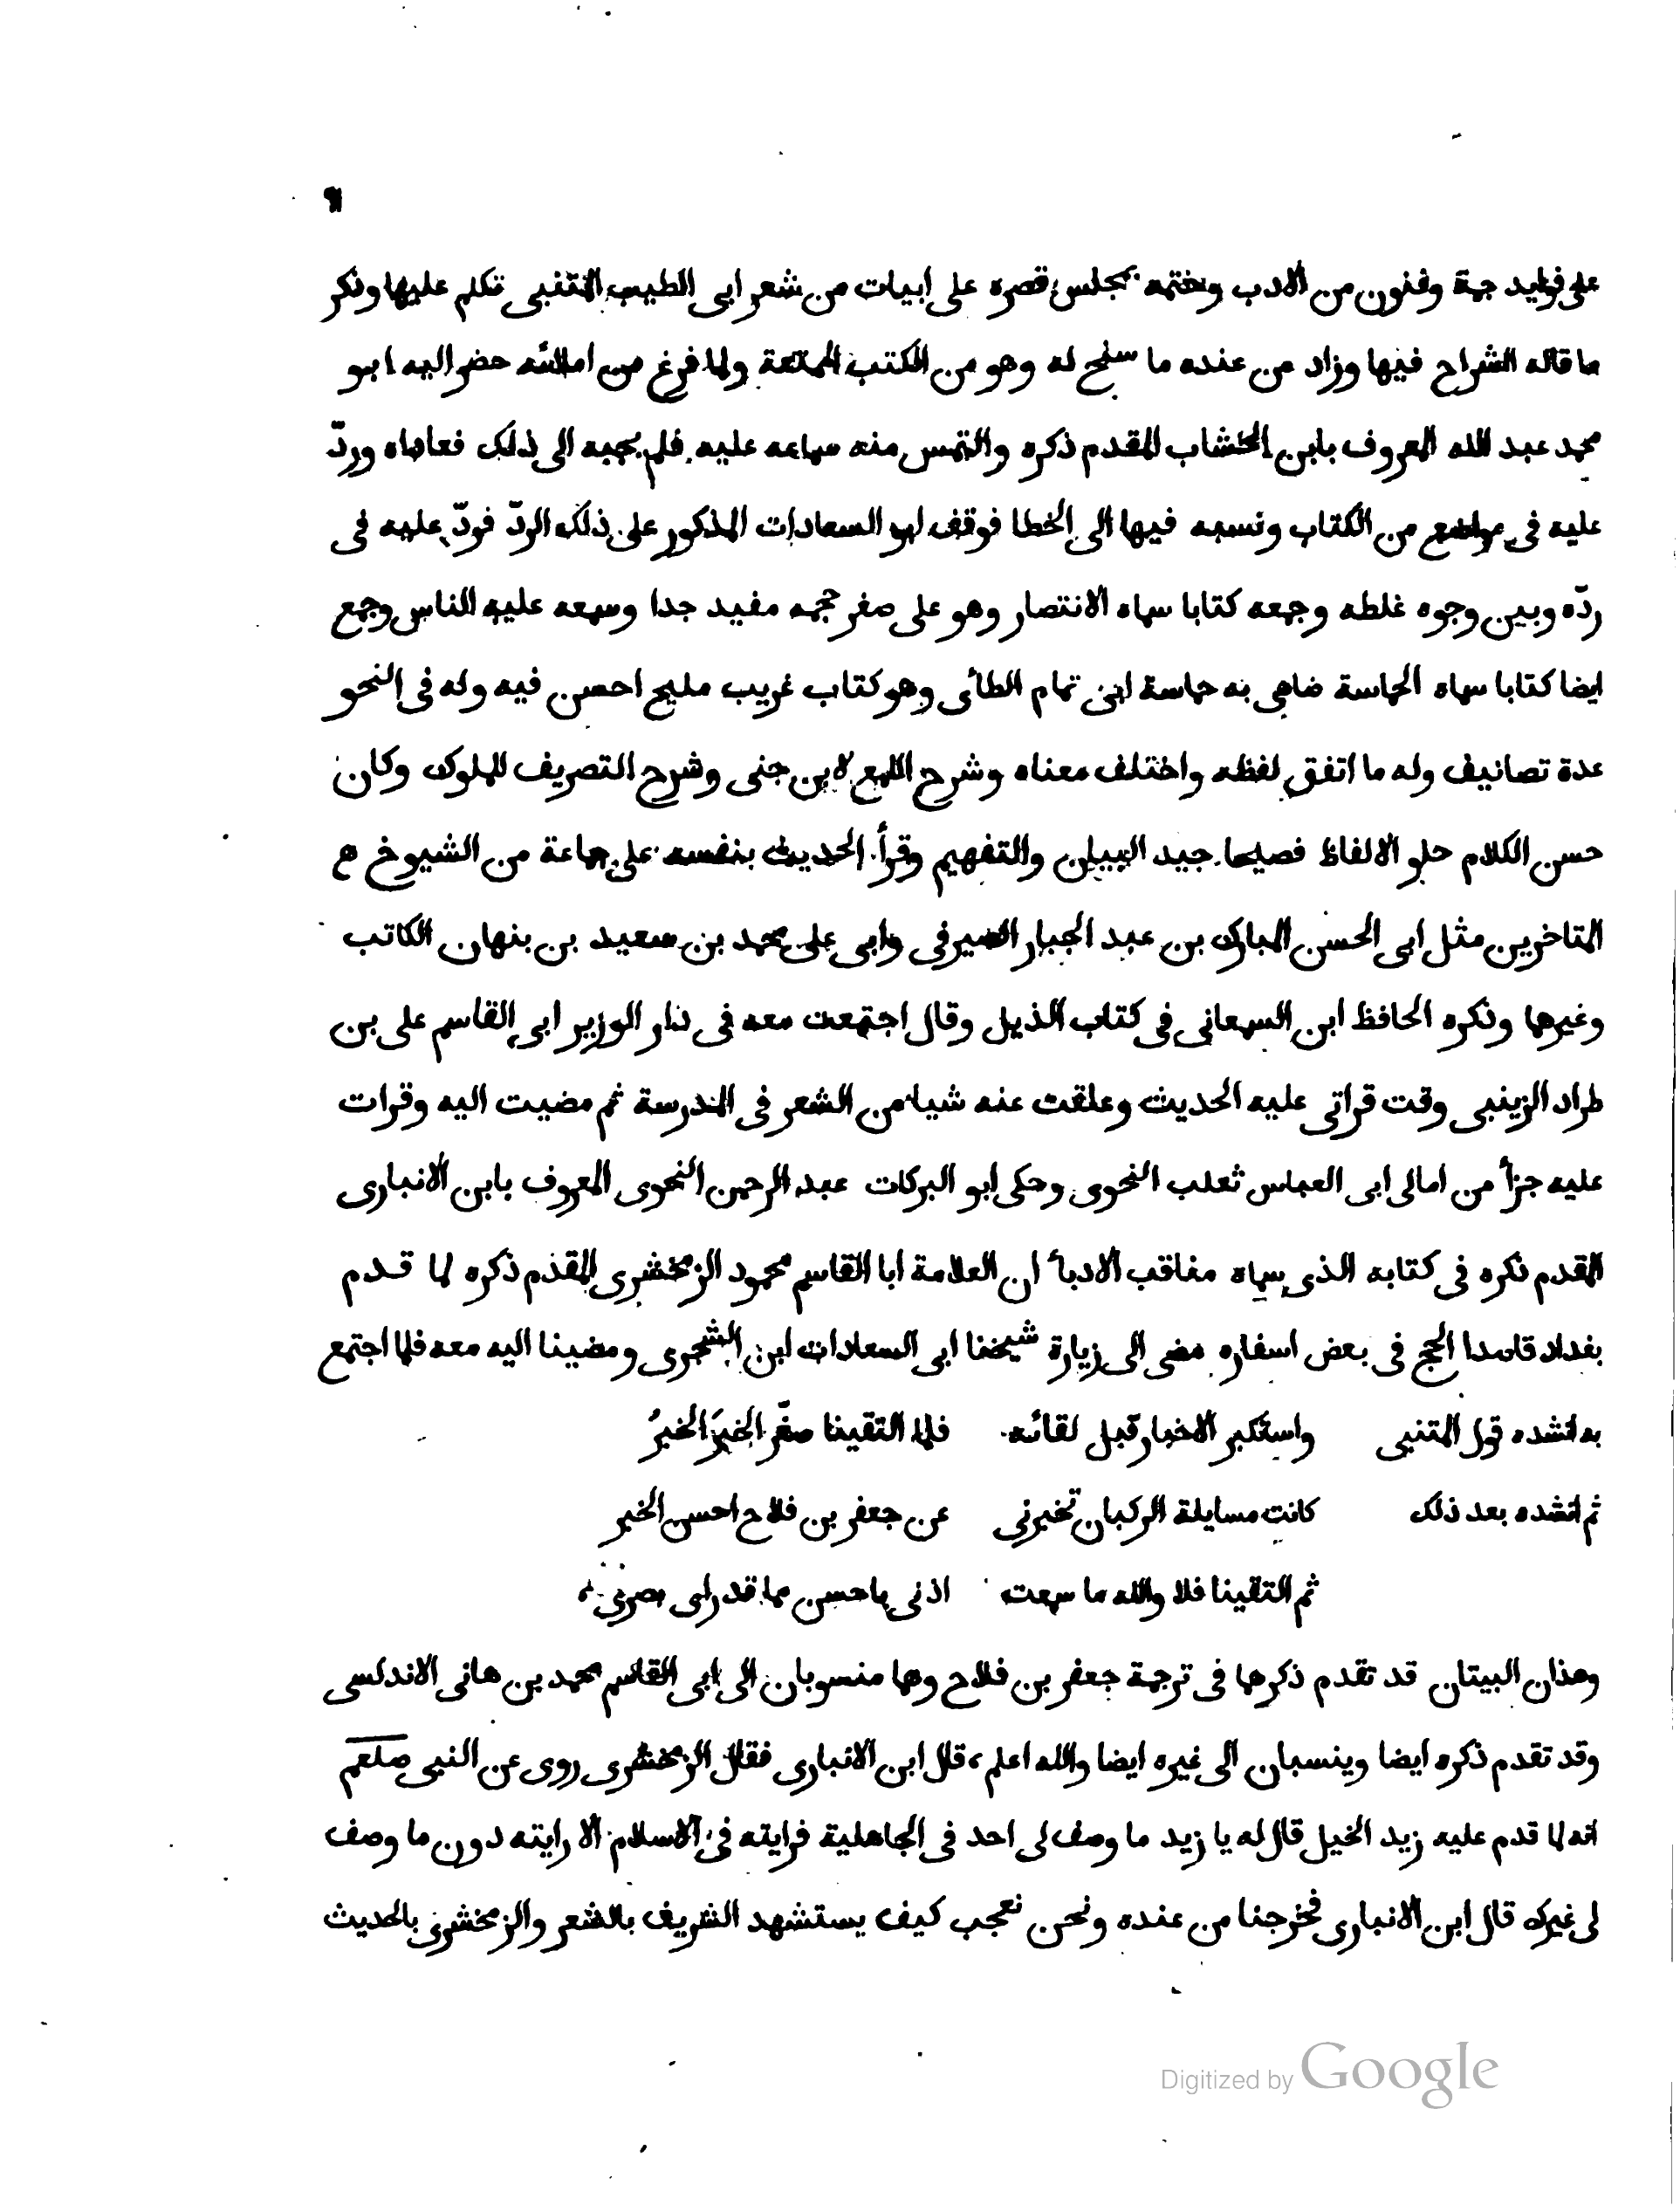 ٩١
على فوايد جمة وفنون من الادب وختمه بمجلس قصره على ابيات من شعر ابى الطيب المتنبى تكلم عليها وذكر
ما قاله الشراح فيها وزاد من عنده ما سنح له وهو من الكتب الممتعة ولما فرغ من املائه حضر اليه ابو
محمد عبد الله المعروف بابن الخشاب المقدم ذكره والتمس منه سماعه عليه فلم يجبه الى ذلك فعاداه وردّ
عليه فى مواضع من الكتاب ونسبه فيها الى الخطا فوقف ابو السعادات المذكور على ذلك الردّ فردّ عليه فى
ردّه وبين وجوه غلطه وجمعه كتابا سماه الانتصار وهو على صغر حجمه مفيد جدا وسمعه عليه الناس وجمع
ايضا كتابا سماه الحماسة ضاهى به حماسة ابى تمام الطائى وهو كتاب غريب مليح احسن فيه وله فى النحو
عدة تصانيف وله ما اتفق لفظه واختلف معناه وشرح اللمع لابن جنى وشرح التصريف الملوكى وكان
حسن الكلام حلو الالفاظ فصيحا جيد البيان والتفهيم وقرأ الحديث بنفسه على جماعة من الشيوخ
المتاخرين مثل ابى الحسن المبارك بن عبد الجبار الصيرفى وابى على محمد بن سعيد بن بنهان الكاتب
وغيرهما وذكره الحافظ ابن السمعانى فى كتاب الذيل وقال اجتمعت معه فى دار الوزير ابى القاسم على بن
طراد الزينبى وقت قراتى عليه الحديث وعلقت عنه شيا من الشعر فى المدرسة ثم مضيت اليه وقرات
عليه جزأ من امالى ابى العباس ثعلب النحوى وحكى ابو البركات عبد الرحمن النحوى المعروف بابن الانبارى
المقدم ذكره فى كتابه الذى سماه مناقب الادبا ان العلامة ابا القاسم محمود الزمخشرى المقدم ذكره لما قدم
بغداد قاصدا الحج فى بعض اسفاره مضى الى زيارة شيخنا ابى السعادات ابن الشجرى ومضينا اليه معه فلما اجتمع
به انشده قول المتنبى واستكبر الاخبار قبل لقائه فلما التقينا صغّر الخبَرَ الخبرُ
ثم انشده بعد ذلك كانت مسايلة الركبان تخبرنى عن جعفر بن فلاح احسن الخبر
ثم التقينا فلا والله ما سمعت اذنى باحسن مما قد راى بصرى
وهذان البيتان قد تقدم ذكرهما فى ترجمة جعفر بن فلاح وهما منسوبان الى ابى القاسم محمد بن هانى الاندلسى
وقد تقدم ذكره ايضا وينسبان الى غيره ايضا والله اعلم، قال ابن الانبارى فقال الزمخشرى روى عن النبى صلعم
انه لما قدم عليه زيد الخيل قال له يا زيد ما وصف لى احد فى الجاهلية فرايته فى الاسلام الا رايته دون ما وصف
لى غيرك قال ابن الانبارى فخرجنا من عنده ونحن نعجب كيف يستشهد الشريف بالشعر والزمخشرى بالحديث
Digitized by Google